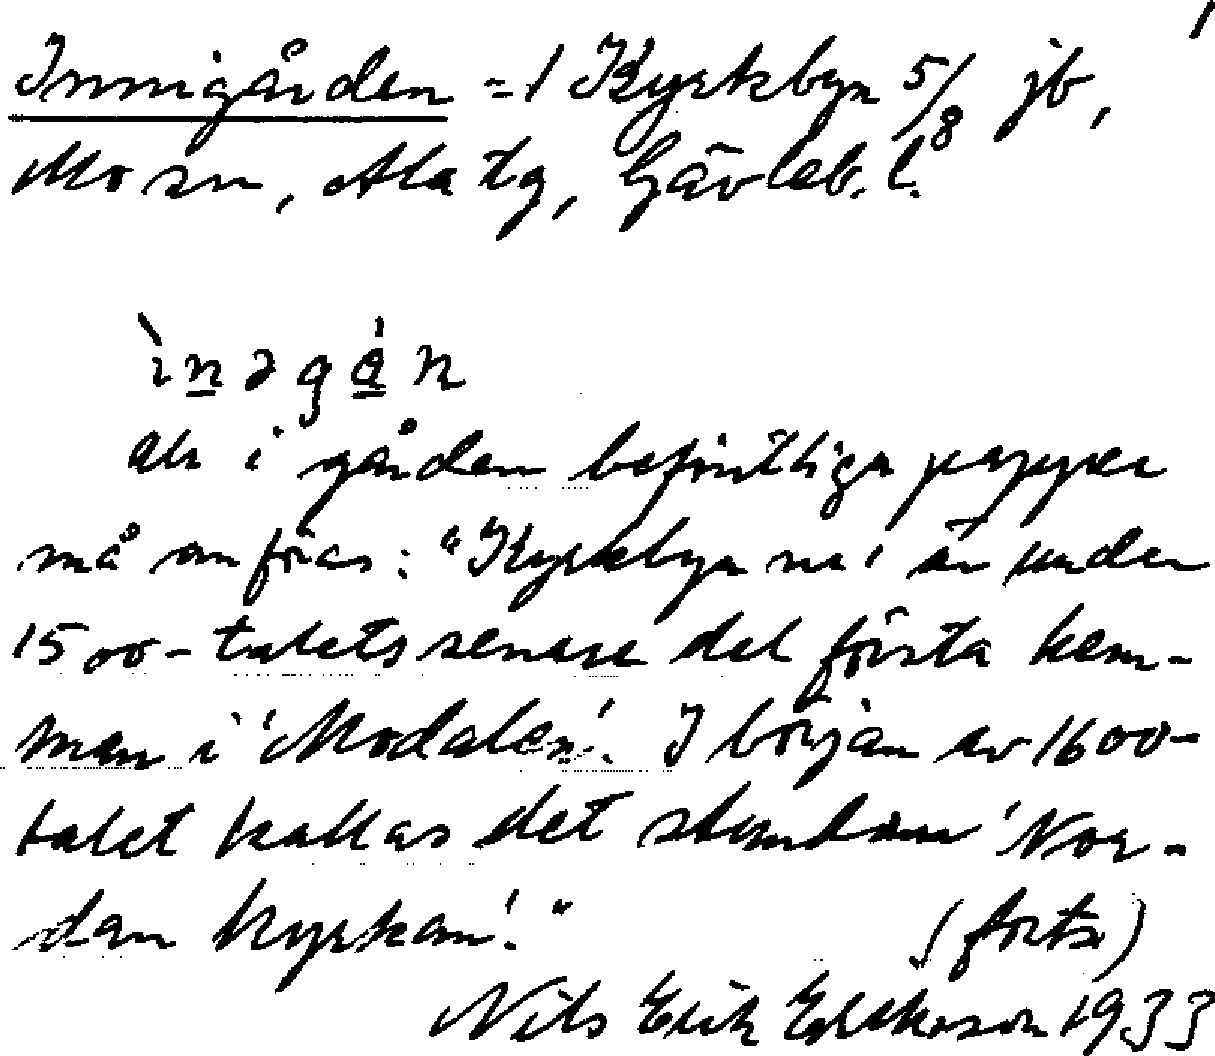 1
Innigården = 1 Kyrkbyn 5/8 jb,
Mo sn, Ala tg, Gävleb. l.
ìnəgán
Ur i gården befintliga papper
må anföras: "Kyrkbyn nr 1 är under
1500-talets senare del första hem-
man i 'Modalen'. I början av 1600-
talet kallas det stundom 'Nor-
dan kyrkan'."
(forts)
Nils Erik 1933